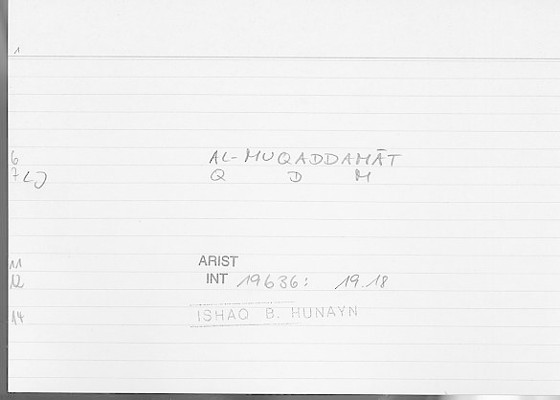 1
6 AL-MUQADDAMĀT
7 LJ Q D M
11 ARIST
12 INT 19636: 19.18
14 ISHAQ B. HUNAYN